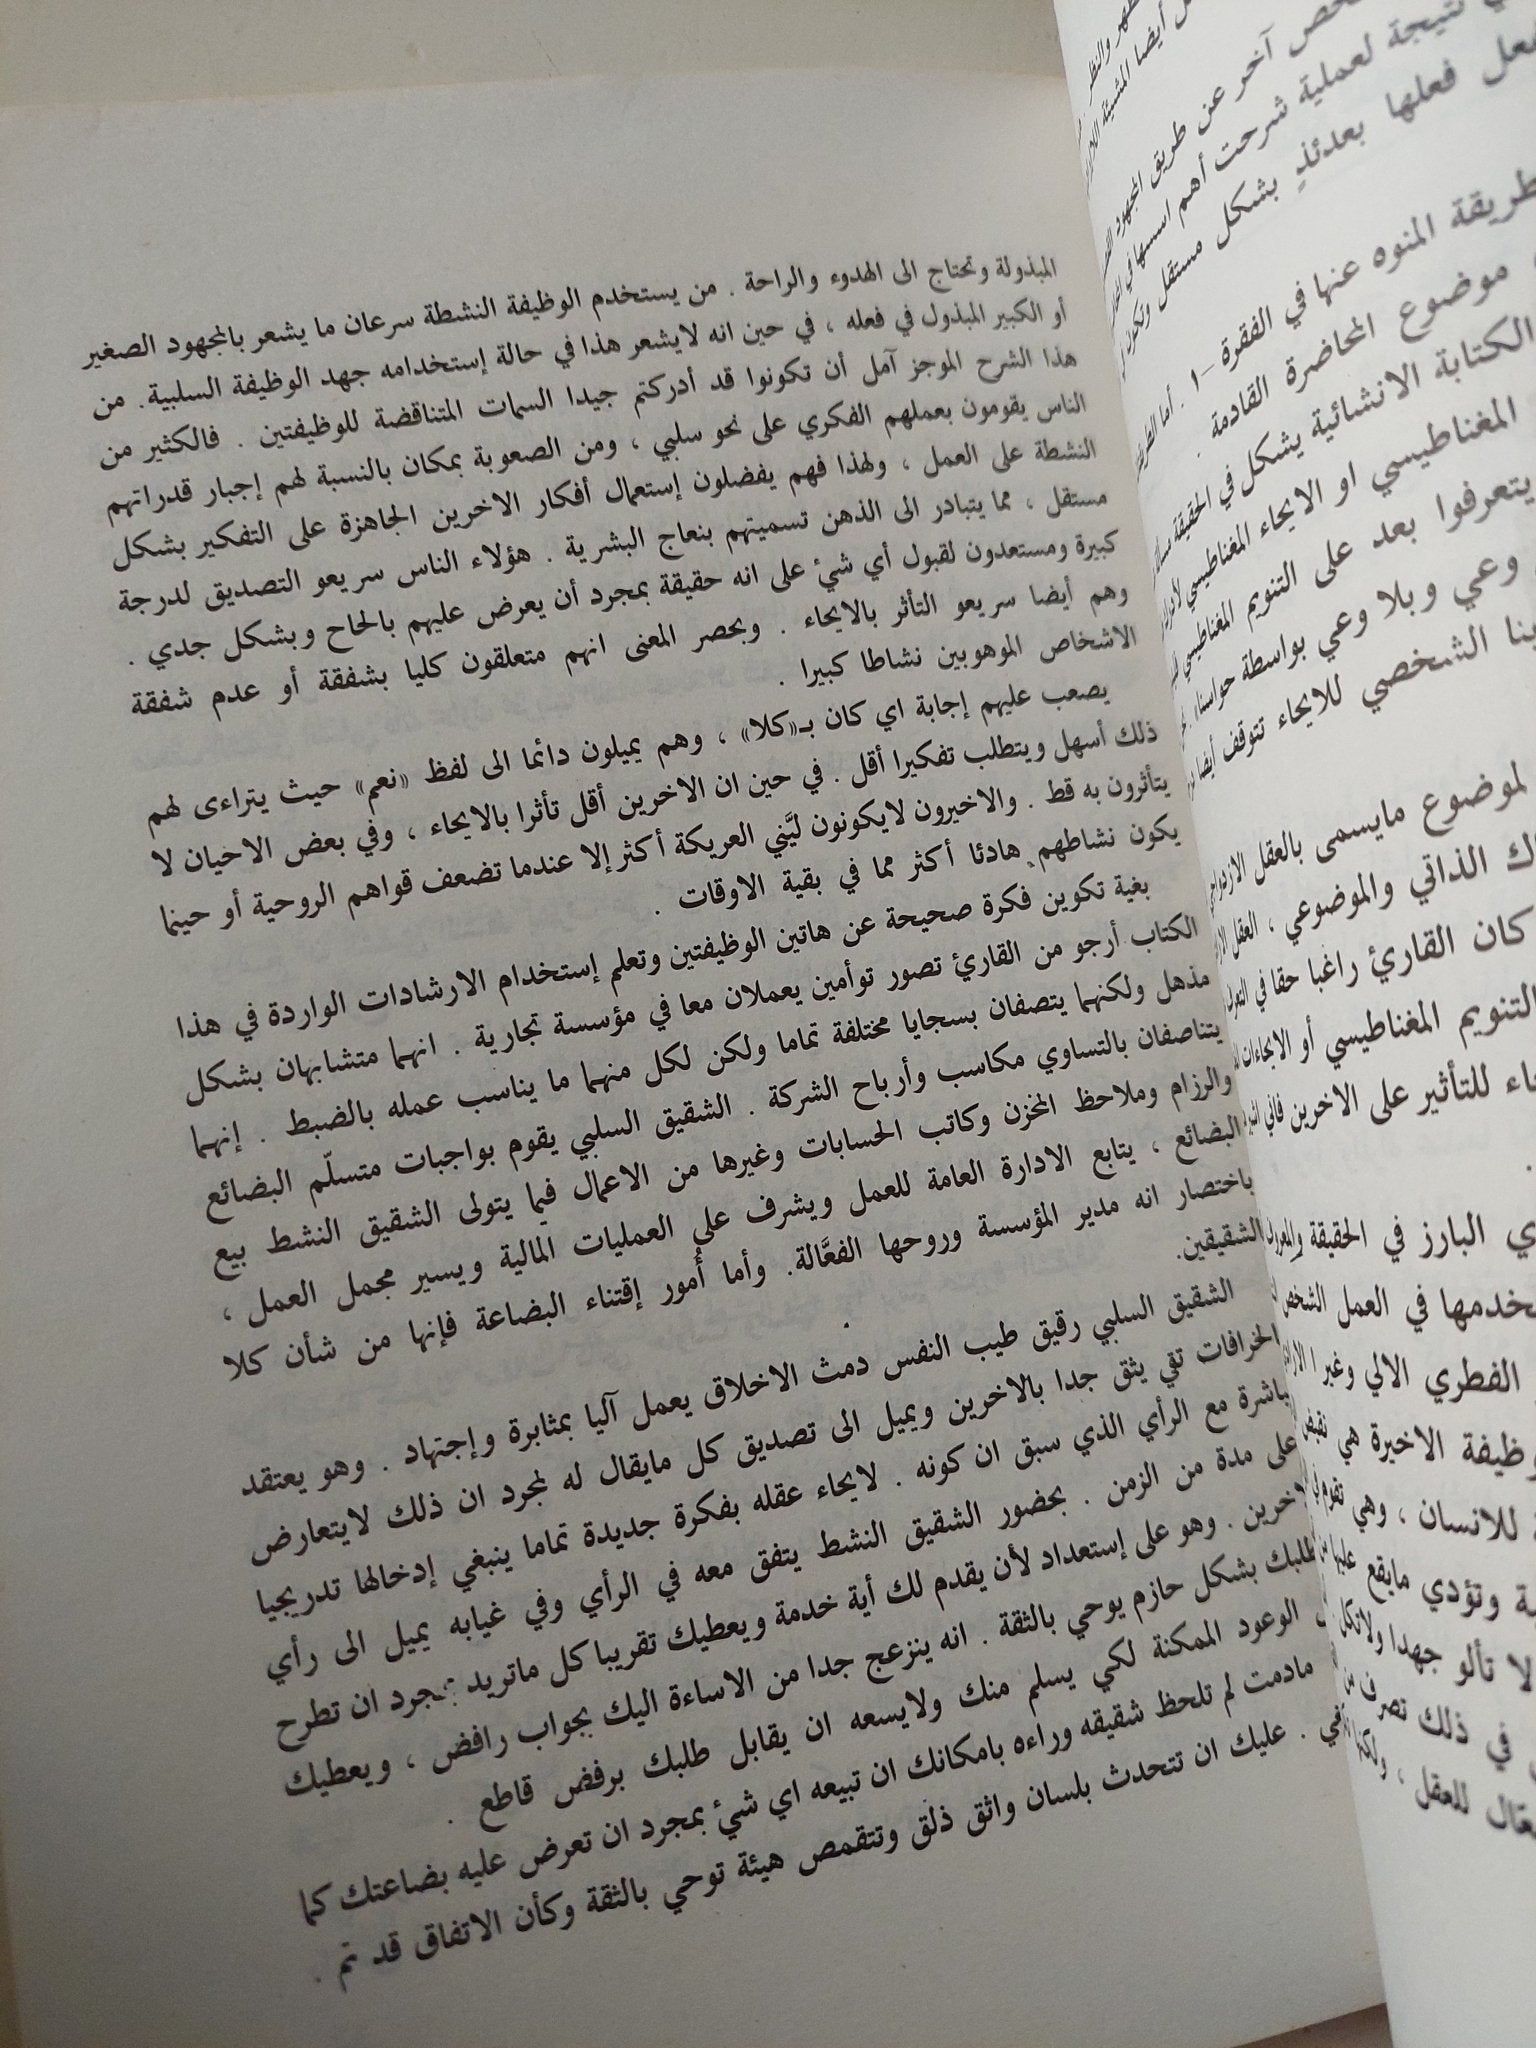 المبذولة وتحتاج الى الهدوء والراحة . من يستخدم الوظيفة النشطة سرعان ما يشعر بالمجهود الصغير
أو الكبير المبذول في فعله ، في حين انه لايشعر هذا في حالة إستخدامه جهد الوظيفة السلبية. من
هذا الشرح الموجز آمل أن تكونوا قد أدركتم جيدا السمات المتناقضة للوظيفتين . فالكثير من
الناس يقومون بعملهم الفكري على نحو سلبي ، ومن الصعوبة بمكان بالنسبة لهم إجبار قدراتهم
النشطة على العمل ، ولهذا فهم يفضلون إستعمال أفكار الاخرين الجاهزة على التفكير بشكل
مستقل ، مما يتبادر الى الذهن تسميتهم بنعاج البشرية . هؤلاء الناس سريعو التصديق لدرجة
كبيرة ومستعدون لقبول أي شئ على انه حقيقة بمجرد أن يعرض عليهم بالحاح وبشكل جدي .
وهم أيضا سريعو التأثر بالايحاء . وبحصر المعنى انهم متعلقون كليا بشفقة أو عدم شفقة
الاشخاص الموهوبين نشاطا كبيرا .
يصعب عليهم إجابة اي كان بـ«كلا» ، وهم يميلون دائما الى لفظ «نعم» حيث يتراءى لهم
ذلك أسهل ويتطلب تفكيرا أقل . في حين ان الاخرين أقل تأثرا بالايحاء ، وفي بعض الاحيان لا
يتأثرون به قط . والاخيرون لايكونون ليَّني العريكة أكثر إلا عندما تضعف قواهم الروحية أو حينما
يكون نشاطهم هادئا أكثر مما في بقية الاوقات .
بغية تكوين فكرة صحيحة عن هاتين الوظيفتين وتعلم إستخدام الارشادات الواردة في هذا
الكتاب أرجو من القارئ تصور توأمين يعملان معا في مؤسسة تجارية . انهما متشابهان بشكل
مذهل ولكنهما يتصفان بسجايا مختلفة تماما ولكن لكل منهما ما يناسب عمله بالضبط . إنهما
يتناصفان بالتساوي مكاسب وأرباح الشركة . الشقيق السلبي يقوم بواجبات متسلّم البضائع
والرزام وملاحظ المخزن وكاتب الحسابات وغيرها من الاعمال فيما يتولى الشقيق النشط بيع
البضائع ، يتابع الادارة العامة للعمل ويشرف على العمليات المالية ويسير مجمل العمل ،
باختصار انه مدير المؤسسة وروحها الفعَّالة. وأما أُمور إقتناء البضاعة فإنها من شأن كلا
الشقيقين.
الشقيق السلبي رقيق طيب النفس دمث الاخلاق يعمل آليا بمثابرة وإجتهاد . وهو يعتقد
الخرافات تقي يثق جدا بالاخرين ويميل الى تصديق كل مايقال له لمجرد ان ذلك لايتعارض
باشرة مع الرأي الذي سبق ان كونه . لايحاء عقله بفكرة جديدة تماما ينبغي إدخالها تدريجيا
على مدة من الزمن . بحضور الشقيق النشط يتفق معه في الرأي وفي غيابه يميل الى رأي
لاخرين . وهو على إستعداد لأن يقدم لك أية خدمة ويعطيك تقريبا كل ماتريد بمجرد ان تطرح
طلبك بشكل حازم يوحي بالثقة . انه ينزعج جدا من الاساءة اليك بجواب رافض ، ويعطيك
الوعود الممكنة لكي يسلم منك ولايسعه ان يقابل طلبك برفض قاطع .
مادمت لم تلحظ شقيقه وراءه بامكانك ان تبيعه اي شئ بمجرد ان تعرض عليه بضاعتك كما
. عليك ان تتحدث بلسان واثق ذلق وتتقمص هيئة توحي بالثقة وكأن الاتفاق قد تم .
أيضا المشيئة
خص آخر عن طريق المجهود
نتيجة لعملية شرحت أهم اسسها في
فعلها بعدئذٍ بشكل مستقل
طريقة المنوه عنها في الفقرة -١ . أما
موضوع المحاضرة القادمة .
الكتابة الانشائية يشكل في الحقيقة
المغناطيسي او الايحاء المغناطيسي
يتعرفوا بعد على التنويم المغناطيسي
وعي وبلا وعي بواسطة حواسنا
الشخصي للايحاء تتوقف أيضا
لموضوع مايسمى بالعقل الازدواجي
الذاتي والموضوعي ، العقل
كان القارئ راغبا حقا في
التنويم المغناطيسي أو الايحاءات
للتأثير على الاخرين فاني
البارز في الحقيقة
في العمل
الفطري الالي وغير
الاخيرة هي نقيض
للانسان ، وهي تقوم
وتؤدي مايقع عليها
لا تألو جهدا
في ذلك تصرف
للعقل ، ولكنها